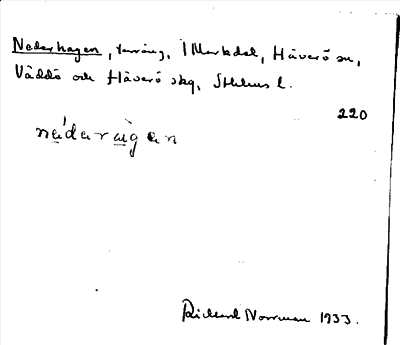 Nederhagen, terräng, i Markdal, Häverö sn,
Väddö och Häverö skg, Sthlms l.
220
nedaragen
Rickard Norrman 1933.